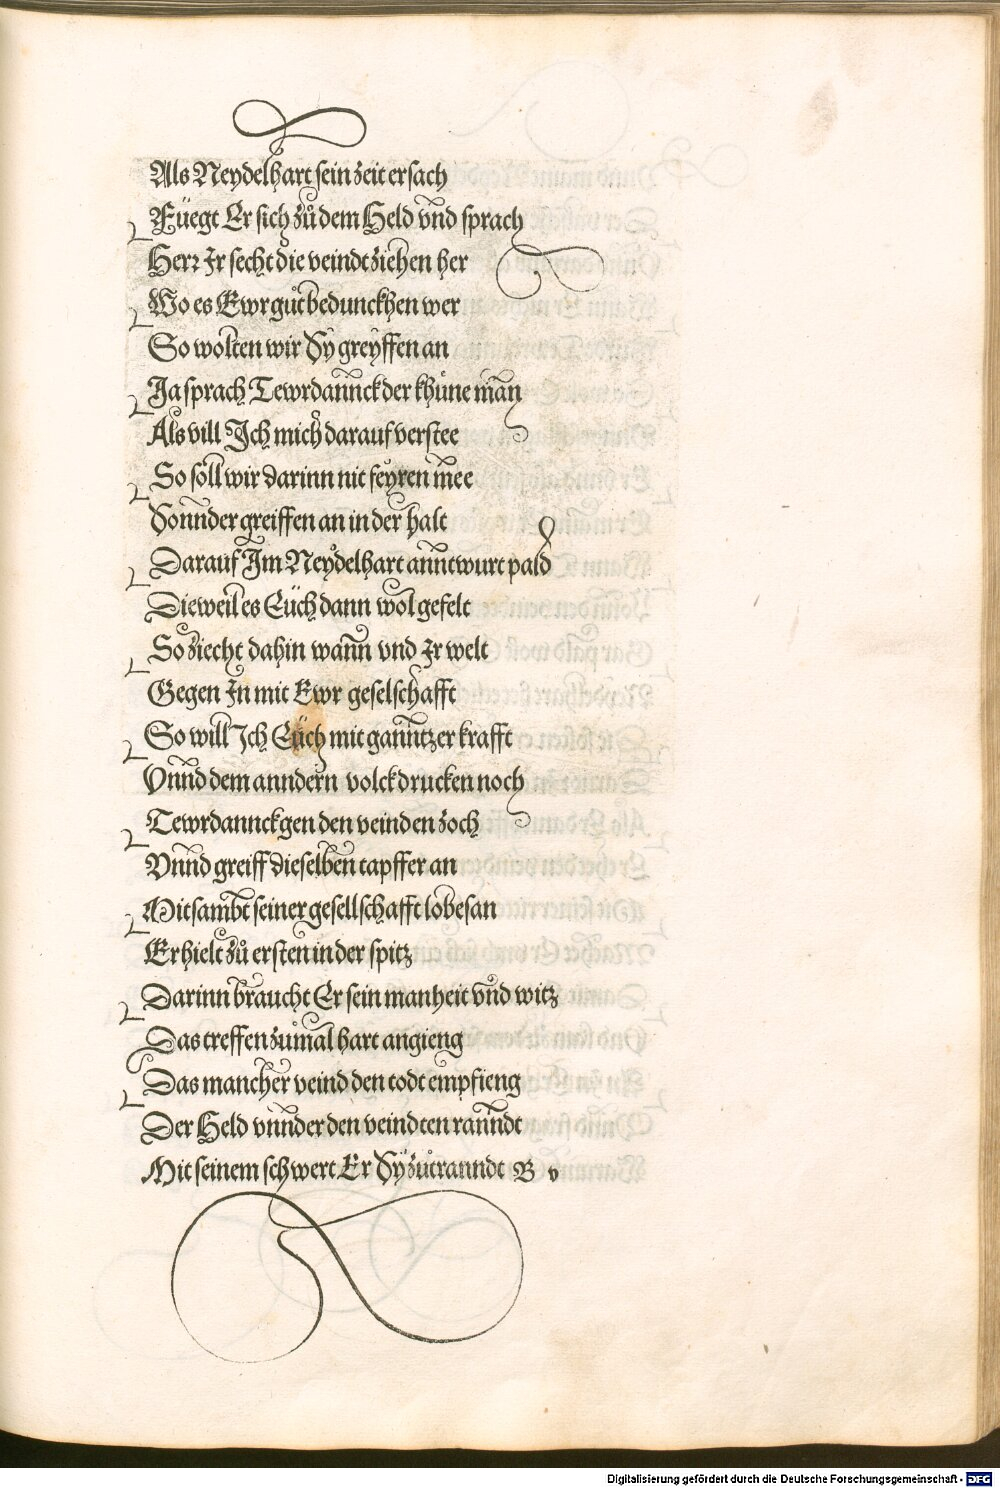 Als Neydelhart sein zeit ersach
Füegt Er sich zů dem Held vnd sprach
Herr Ir secht die veindt ziehen her
Wo es Ewr gůt bedunckhen wer
So wolten wir Sy greyffen an
Ja sprach Tewrdannck der khüne man
Als vill Ich mich darauf verstee
So söll wir darinn nit feyren mee
Sonnder greiffen an in der halt
Darauf Im Neydelhart anntwurt pald
Dieweil es Eüch dann wol gefelt
So ziecht dahin wann vnd Ir welt
Gegen In mit Ewr geselschafft
So will Ich Eüch mit ganntzer krafft
Vnnd dem anndern volck drucken noch
Tewrdannck gen den veinden zoch
Vnnd greiff dieselben tapffer an
Mitsambt seiner gesellschafft lobesan
Er hielt zů ersten in der spitz
Darinn braucht Er sein manheit vnd witz
Das treffen zůmal hart angieng
Das mancher veind den todt empfieng
Der Held vnnder den veindten ranndt
Mit seinem schwert Er Sy zůtranndt B v
Digitalisierung gefördert durch die Deutsche Forschungsgemeinschaft - DFG